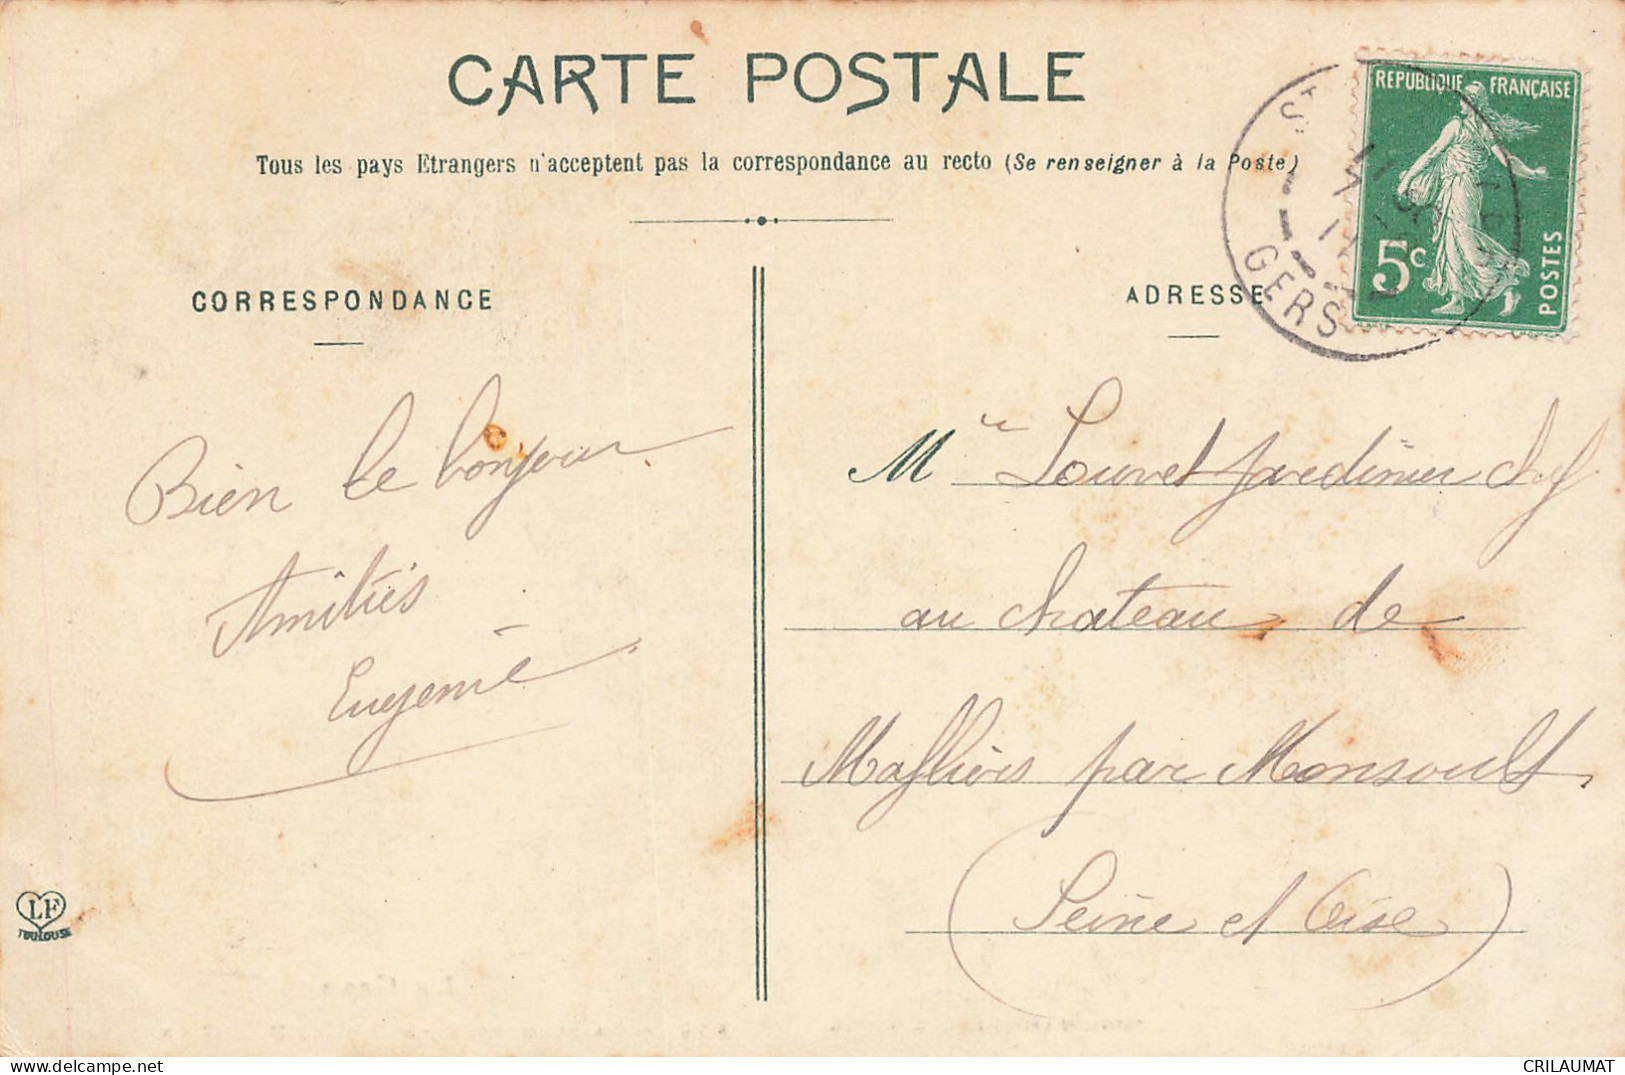 CARTE POSTALE
Tous les pays Etrangers n'acceptent pas la correspondance au recto (Se renseigner à la Poste)
CORRESPONDANCE
ADRESSE
REPUBLIQUE FRANÇAISE
5c
POSTES
GERS
Bien le bonjour
Amitiés
Eugenie
M Louvet jardinier chef
au chateau de
Mafliers par Monsoult
(Seine et Oise)
LF
TOULOUSE
CRILAUMAT